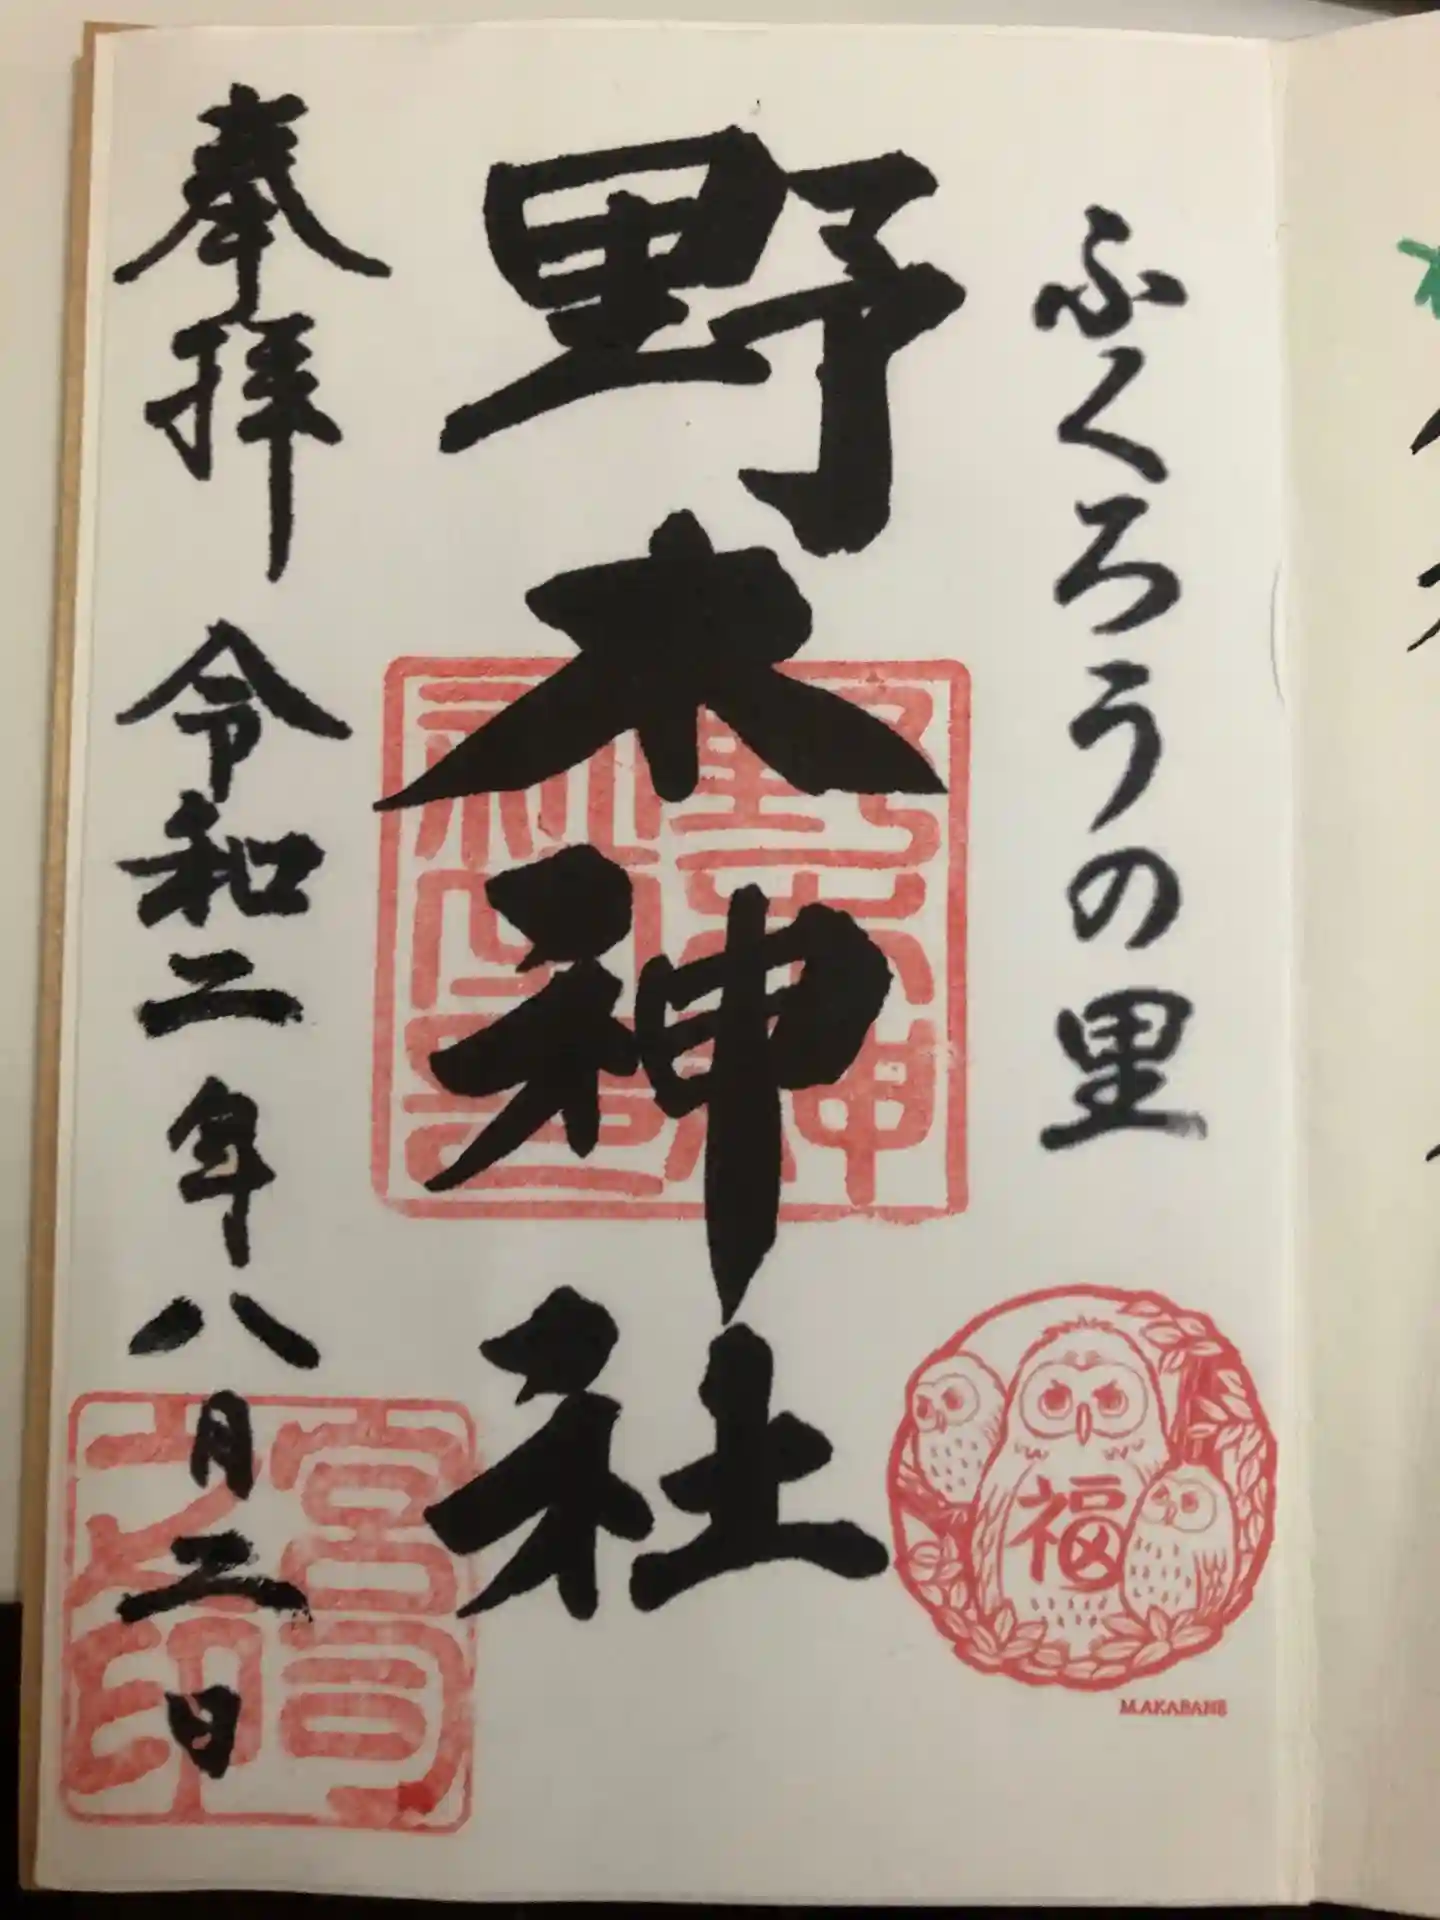 ふくろうの里
野木神社
奉拝 令和二年八月二日
野木神社之印
宮司之印
福
M.AKABANE